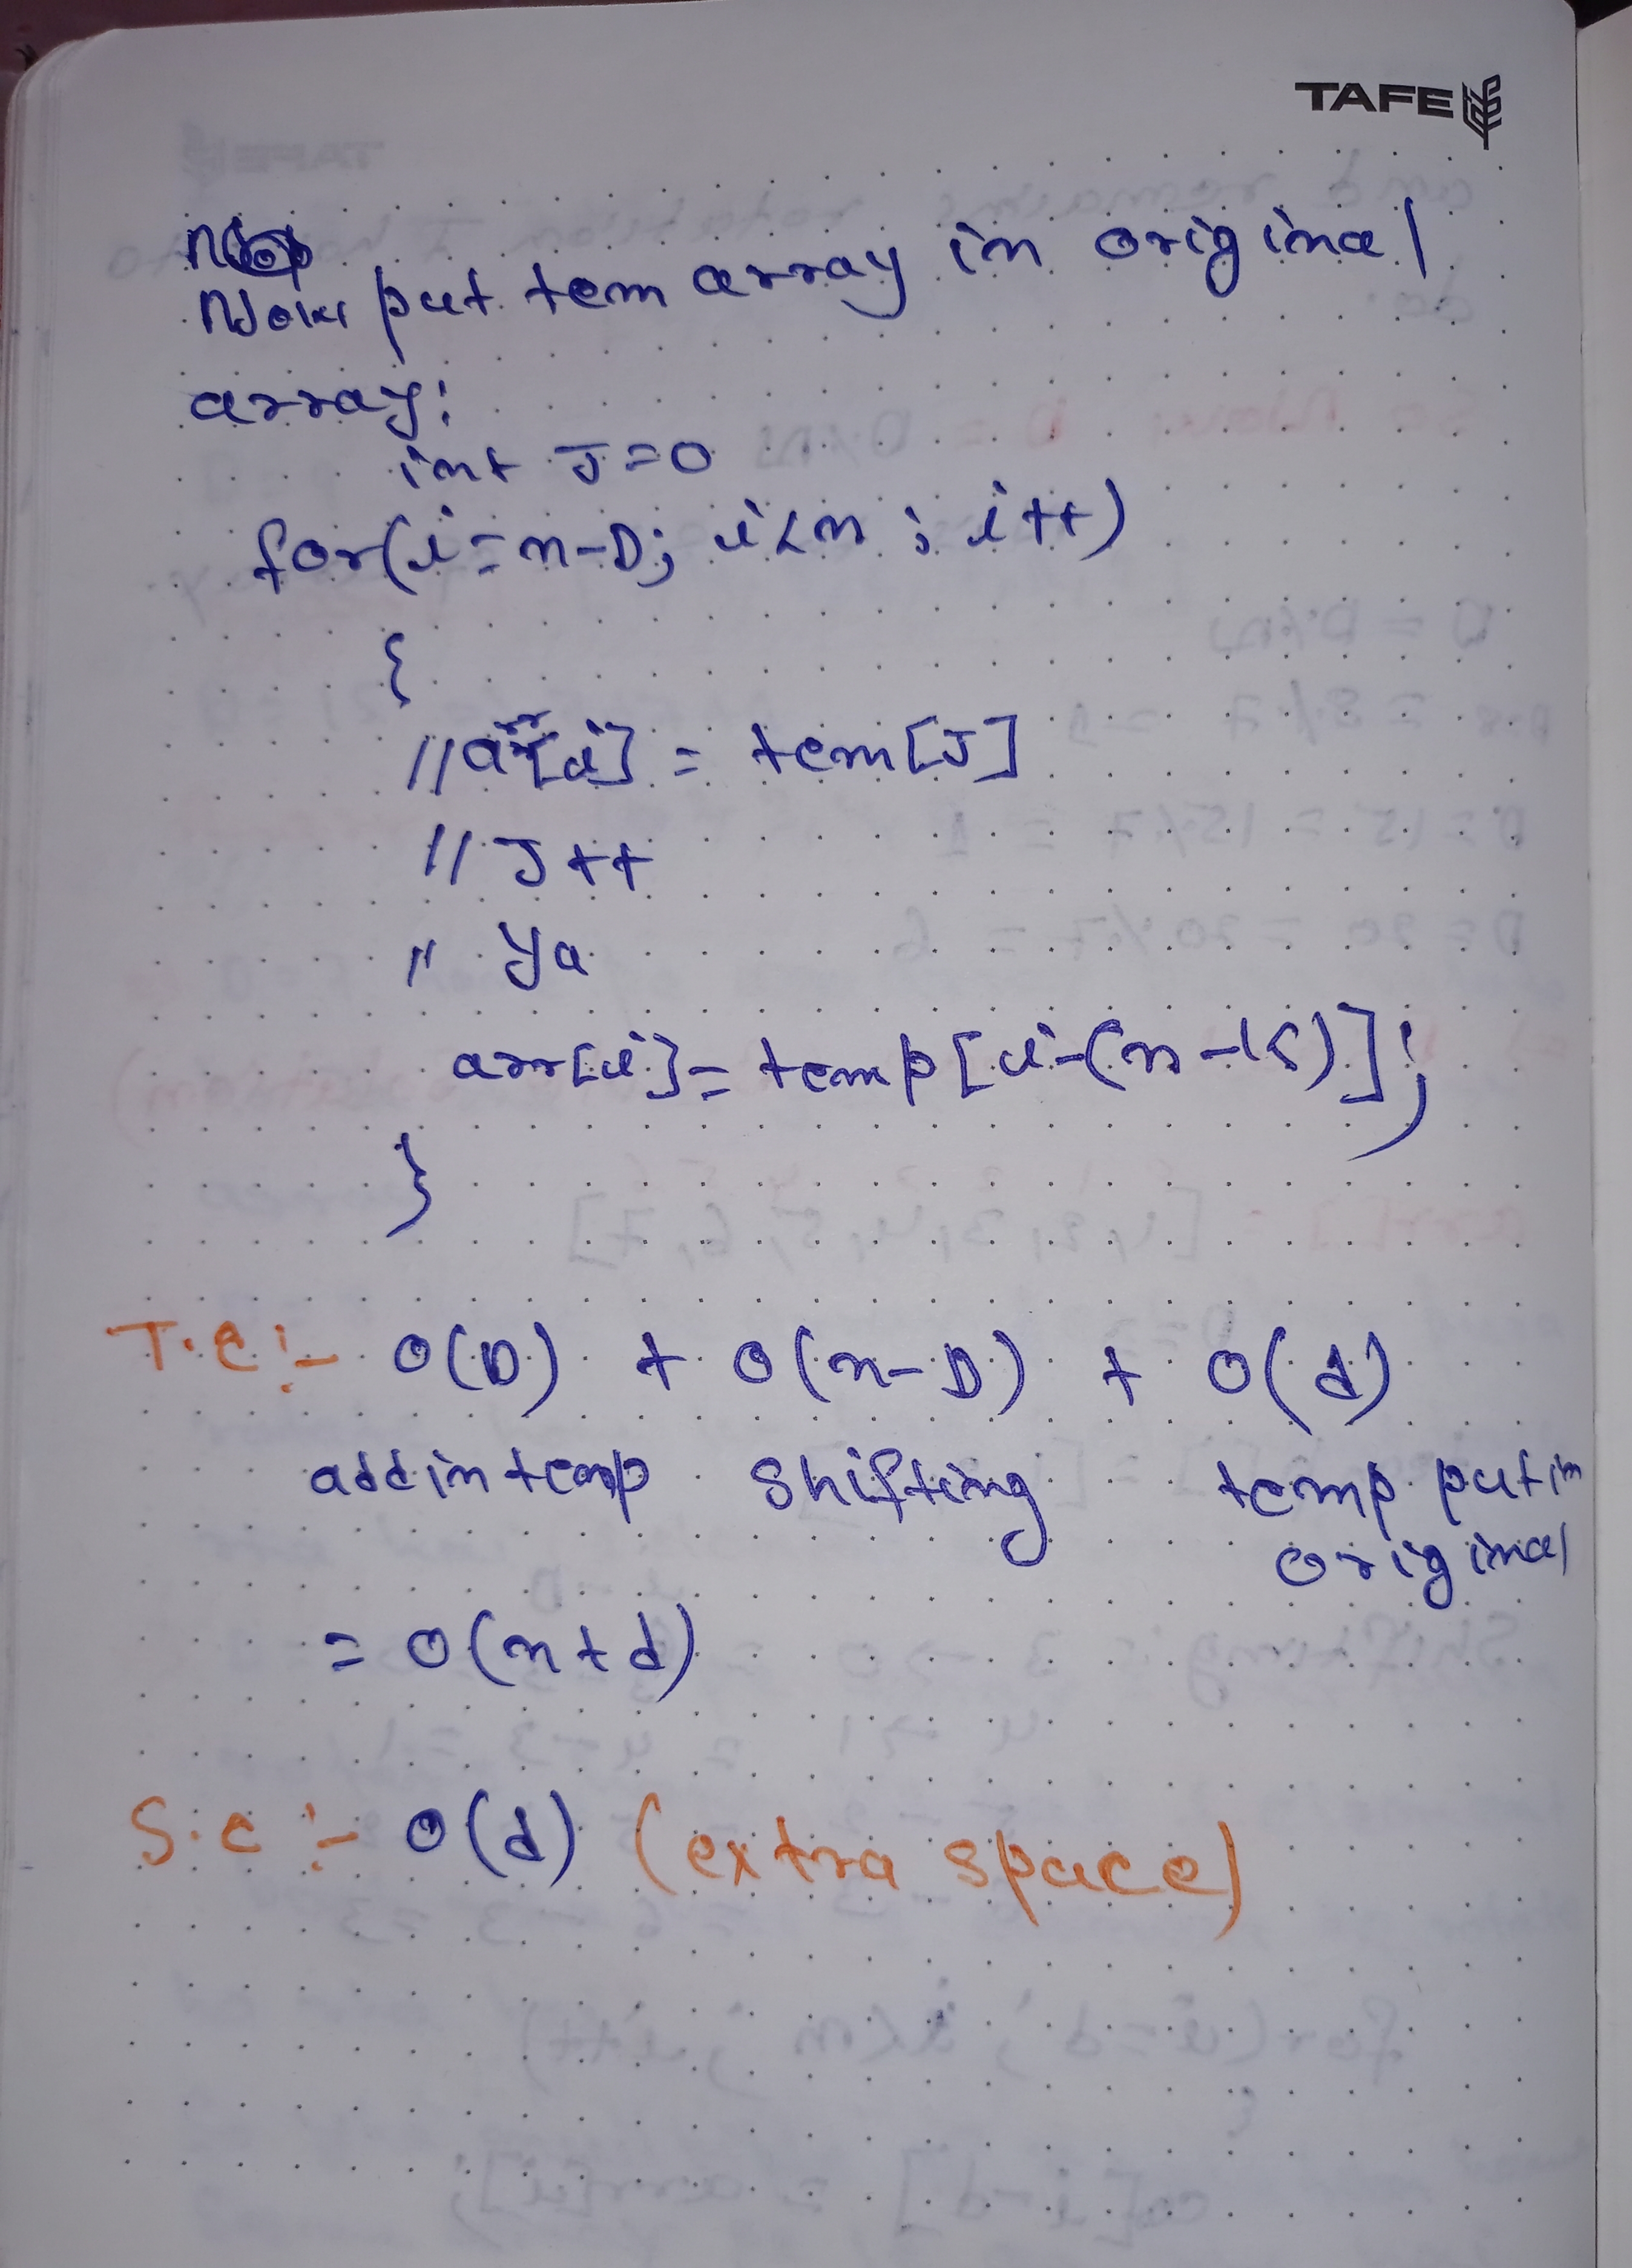 TAFE
Now put tem array in original
array:
int J=0
for(i=n-D; i<n; i++)
{
//arr[i] = tem[J]
// J++
// Ya
arr[i]= temp[i-(n-k)];
}
T.C:- O(D) + O(n-D) + O(d)
add in temp shifting temp put in
original
= O(n+d)
S.C:- O(d) (extra space)